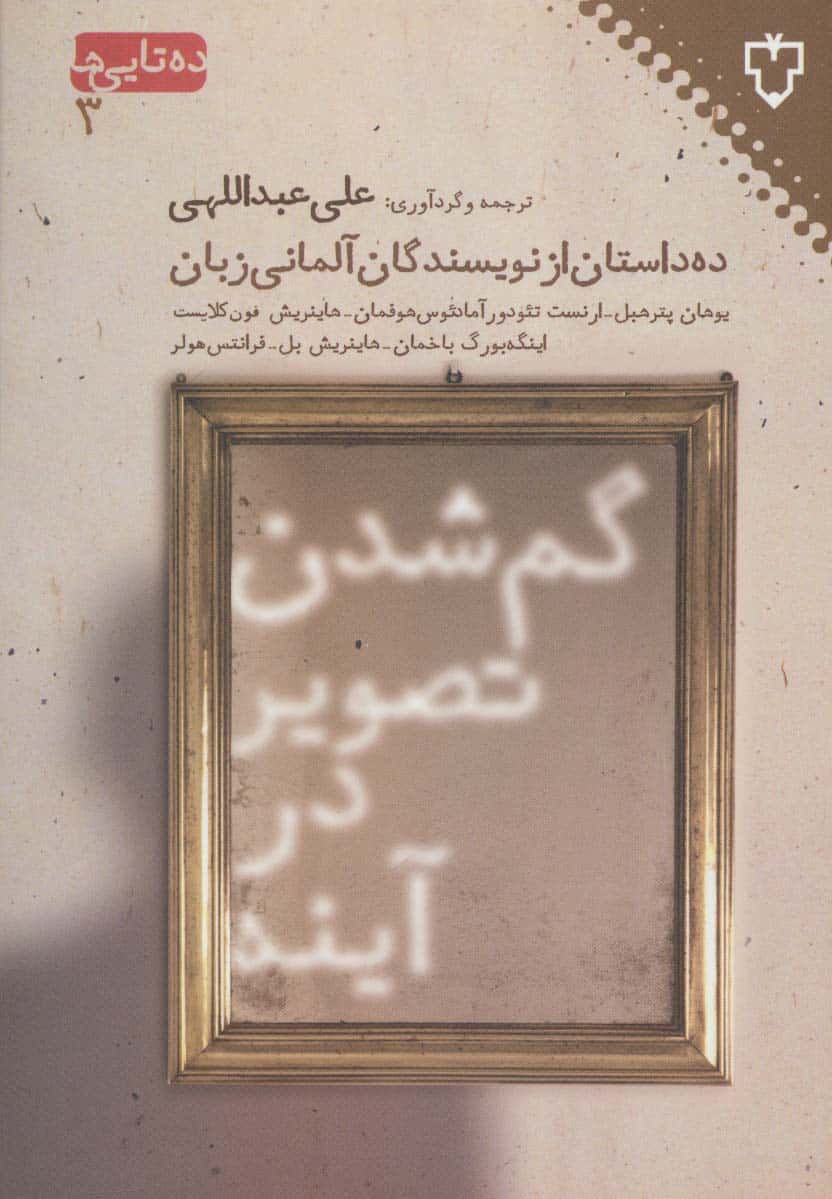 ده‌تایی‌ها
۳
ترجمه و گردآوری: علی عبداللهی
ده داستان از نویسندگان آلمانی زبان
یوهان پتر هبل - ارنست تئودور آمادئوس هوفمان - هاینریش فون کلایست
اینگه‌بورگ باخمان - هاینریش بل - فرانتس هولر
گم شدن
تصویر
در
آینه